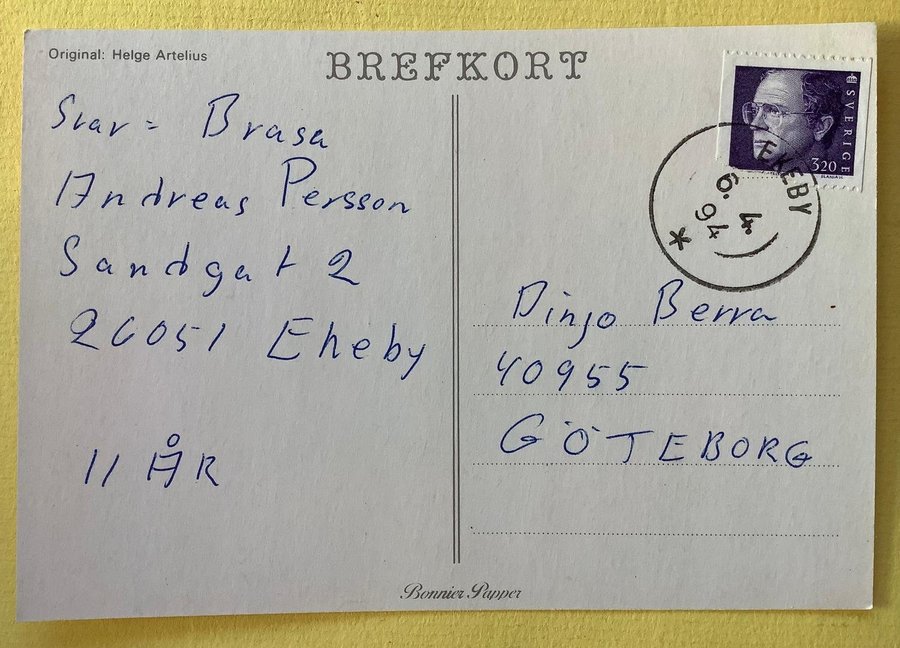 Original: Helge Artelius
BREFKORT
Svar = Brasa
Andreas Persson
Sandgat 2
26051 Ekeby
11 ÅR
SVERIGE
3.20
EKEBY
6. 4.
94
Dingo Berra
40955
GÖTEBORG
Bonnier Papper